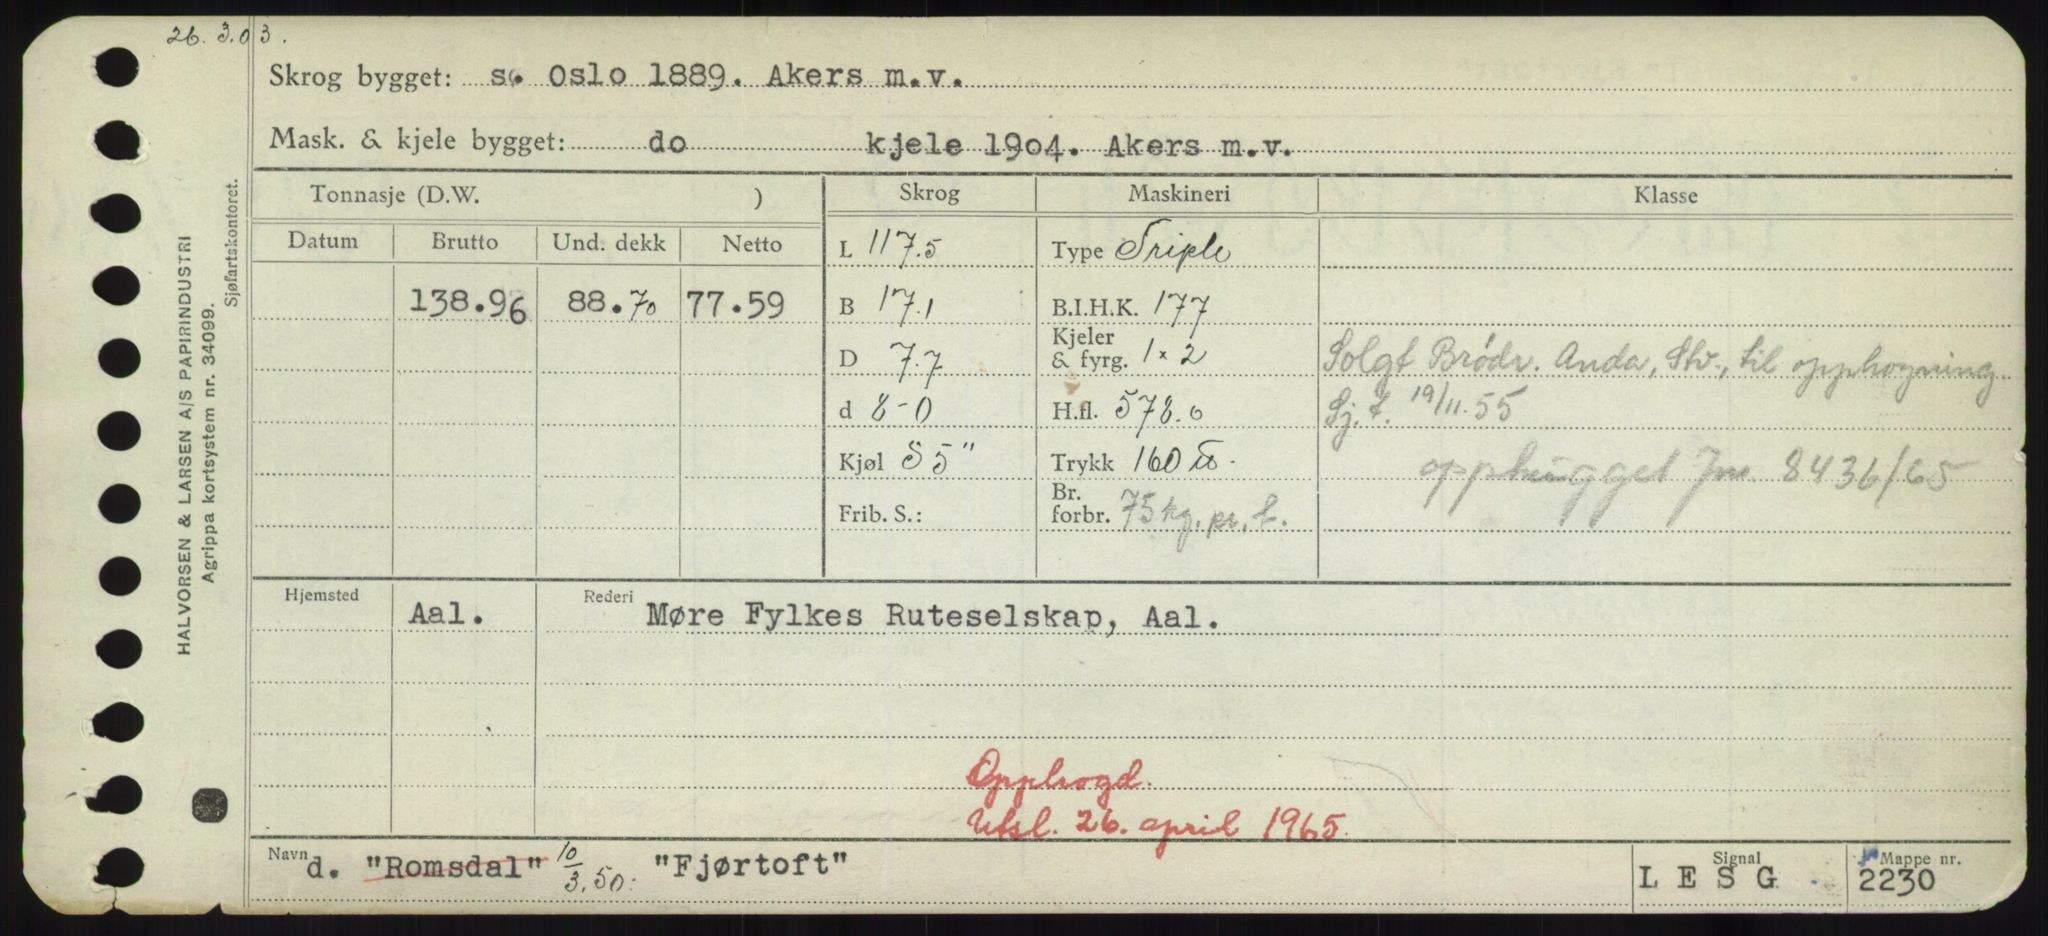 26.3.03.
Skrog bygget: s. Oslo 1889. Akers m.v.
Mask. & kjele bygget: do kjele 1904. Akers m.v.
Tonnasje (D.W. ) Skrog Maskineri Klasse
Datum Brutto Und. dekk Netto
L 117.5 Type Triple
138.96 88.70 77.59 B 17.1 B.I.H.K. 177
D 7.7 Kjeler & fyrg. 1 x 2 Solgt Brødr. Anda, Stv., til opphogning.
d 8-0 H.fl. 578.0 Sj.t. 19/11.55
Kjøl S 5" Trykk 160 lb. opphugget Jnr. 8436/65
Frib. S.: Br. forbr. 75 kg. pr. t.
Hjemsted Aal. Rederi Møre Fylkes Ruteselskap, Aal.
Opphogd.
Utsl. 26. april 1965.
Navn d. "Romsdal" 10/3.50: "Fjørtoft" Signal L E S G Mappe nr. 2230
HALVORSEN & LARSEN A/S PAPIRINDUSTRI
Agrippa kortsystem nr. 34099.
Sjøfartskontoret.